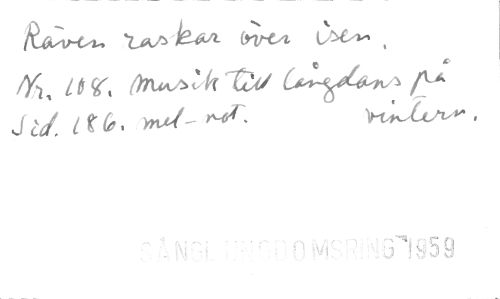 Räven raskar över isen.
Nr. 108. Musik till långdans på
Sid. 186. mel-not. vintern.
SÅNGL UNGDOMSRING 1959